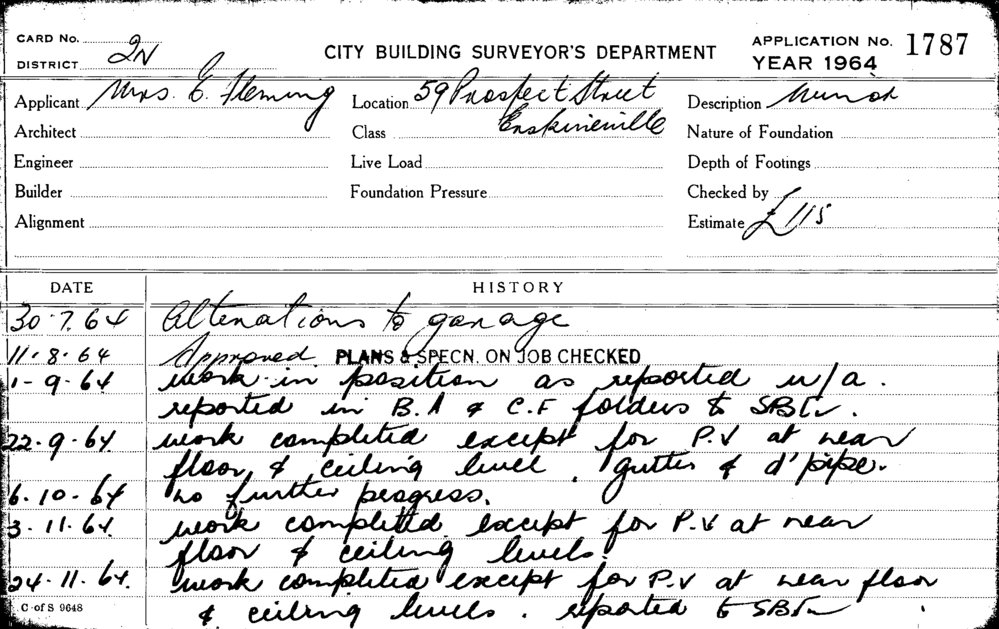 CARD No. 2N
DISTRICT
CITY BUILDING SURVEYOR'S DEPARTMENT
APPLICATION No. 1787
YEAR 1964
Applicant Mrs. E. Fleming
Location 59 Prospect Street
Erskineville
Description Minor
Architect
Class
Nature of Foundation
Engineer
Live Load
Depth of Footings
Builder
Foundation Pressure
Checked by
Alignment
Estimate £115
DATE HISTORY
30.7.64 Alterations to garage
11.8.64 Approved PLANS & SPECN. ON JOB CHECKED
1-9-64 work in position as reported u/a.
reported in B.A & C.F folders to
22.9.64. work completed except for P.V at near
floor & ceiling level. gutter & d'pipe.
6.10.64 no further progress.
3.11.64. work completed except for P.V at near
floor & ceiling levels.
24.11.64. work completed except for P.V at near floor
& ceiling levels. reported to
C of S 9648